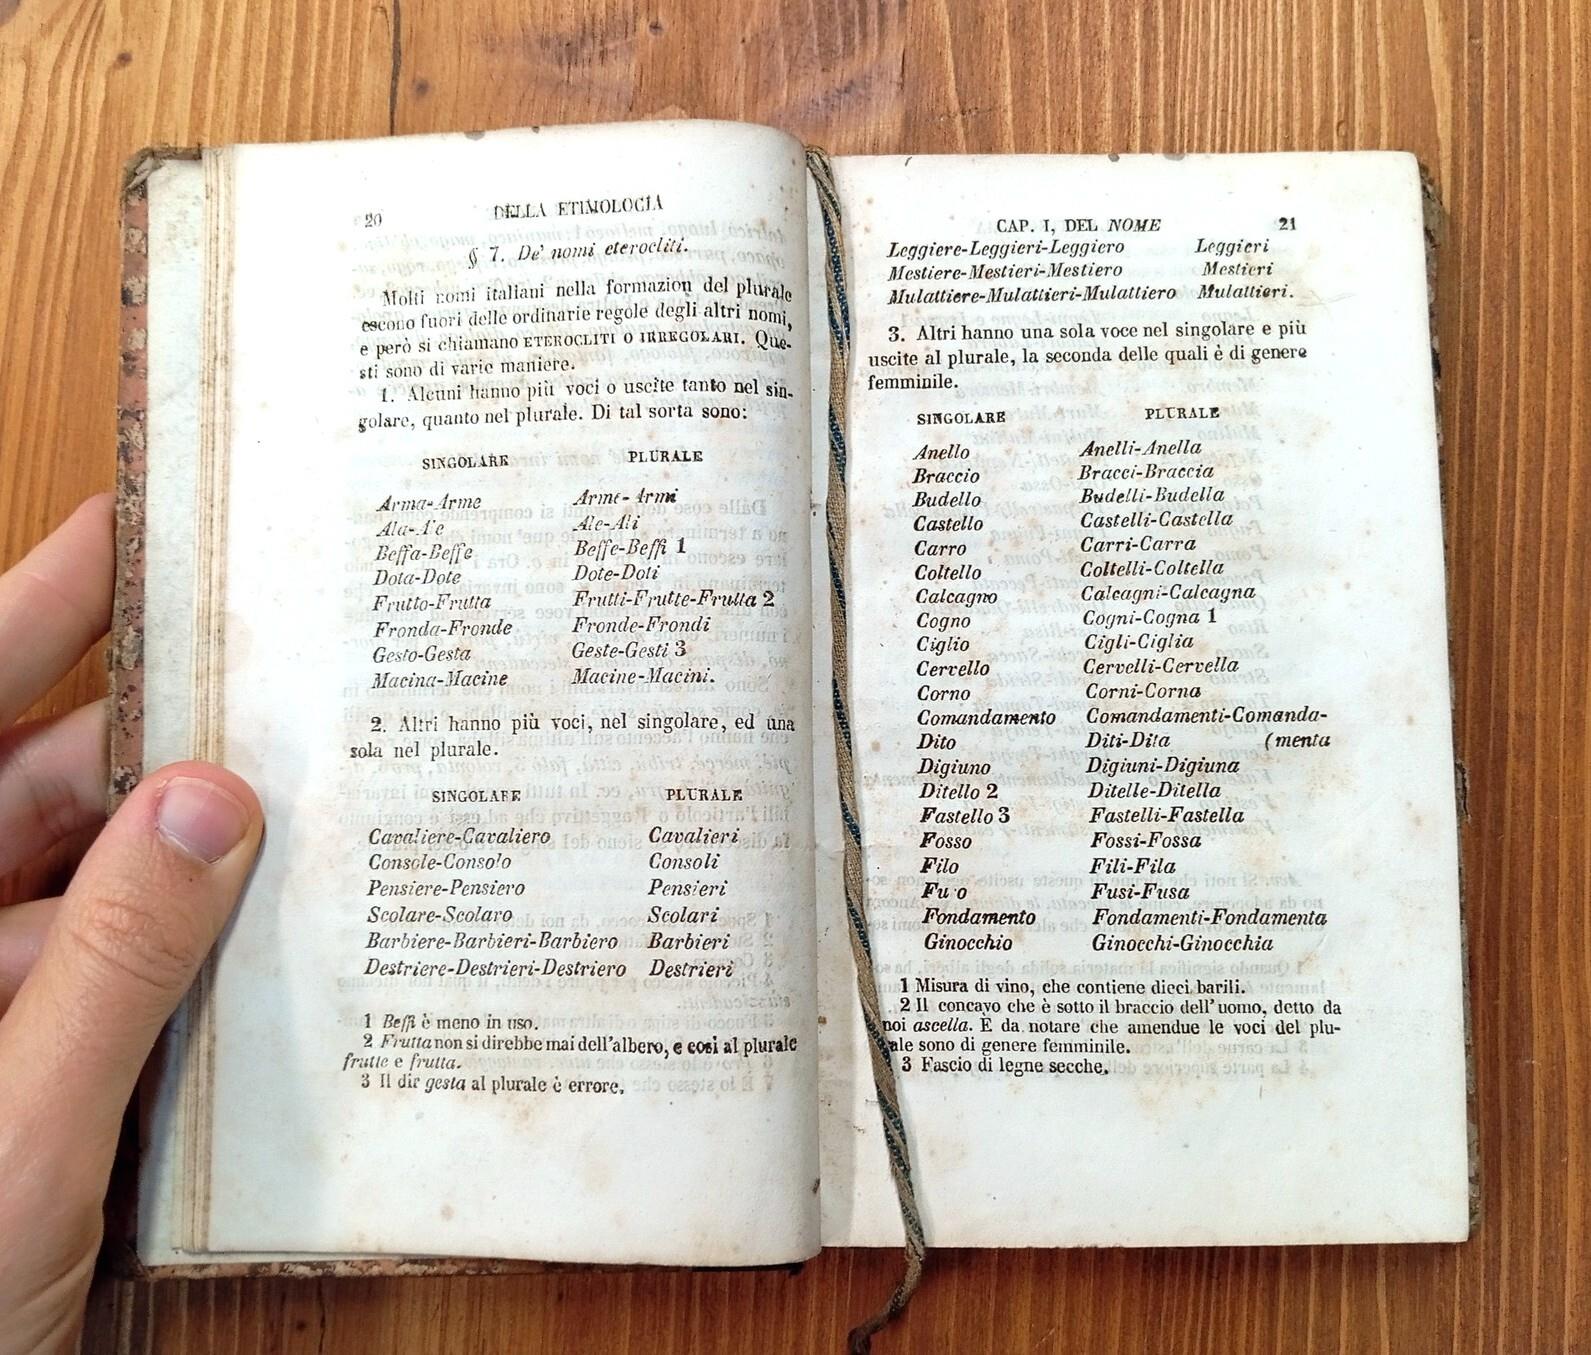 20 DELLA ETIMOLOGIA
§ 7. De' nomi eterocliti.
Molti nomi italiani nella formazion del plurale
escono fuori delle ordinarie regole degli altri nomi,
e però si chiamano ETEROCLITI O IRREGOLARI. Que-
sti sono di varie maniere.
1. Alcuni hanno più voci o uscite tanto nel sin-
golare, quanto nel plurale. Di tal sorta sono:
SINGOLARE PLURALE
Arma-Arme Arme-Armi
Ala-Ale Ale-Ali
Beffa-Beffe Beffe-Beffi 1
Dota-Dote Dote-Doti
Frutto-Frutta Frutti-Frutte-Frutta 2
Fronda-Fronde Fronde-Frondi
Gesto-Gesta Geste-Gesti 3
Macina-Macine Macine-Macini.
2. Altri hanno più voci, nel singolare, ed una
sola nel plurale.
SINGOLARE PLURALE
Cavaliere-Cavaliero Cavalieri
Console-Consolo Consoli
Pensiere-Pensiero Pensieri
Scolare-Scolaro Scolari
Barbiere-Barbieri-Barbiero Barbieri
Destriere-Destrieri-Destriero Destrieri
1 Beffi è meno in uso.
2 Frutta non si direbbe mai dell'albero, e così al plurale
frutte e frutta.
3 Il dir gesta al plurale è errore.
CAP. I, DEL NOME 21
Leggiere-Leggieri-Leggiero Leggieri
Mestiere-Mestieri-Mestiero Mestieri
Mulattiere-Mulattieri-Mulattiero Mulattieri.
3. Altri hanno una sola voce nel singolare e più
uscite al plurale, la seconda delle quali è di genere
femminile.
SINGOLARE PLURALE
Anello Anelli-Anella
Braccio Bracci-Braccia
Budello Budelli-Budella
Castello Castelli-Castella
Carro Carri-Carra
Coltello Coltelli-Coltella
Calcagno Calcagni-Calcagna
Cogno Cogni-Cogna 1
Ciglio Cigli-Ciglia
Cervello Cervelli-Cervella
Corno Corni-Corna
Comandamento Comandamenti-Comanda-
Dito Diti-Dita (menta
Digiuno Digiuni-Digiuna
Ditello 2 Ditelle-Ditella
Fastello 3 Fastelli-Fastella
Fosso Fossi-Fossa
Filo Fili-Fila
Fuso Fusi-Fusa
Fondamento Fondamenti-Fondamenta
Ginocchio Ginocchi-Ginocchia
1 Misura di vino, che contiene dieci barili.
2 Il concavo che è sotto il braccio dell'uomo, detto da
noi ascella. E da notare che amendue le voci del plu-
rale sono di genere femminile.
3 Fascio di legne secche.